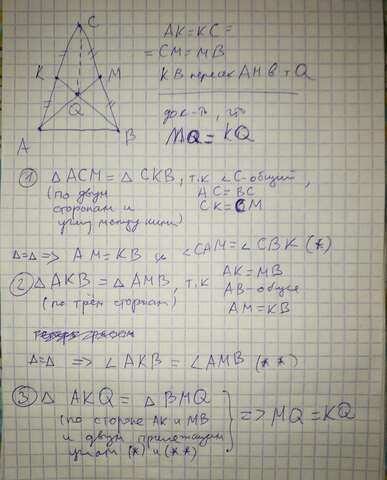 C
K
M
Q
A
B
AK=KC=
=CM=MB
KB пересек AM в т Q
док-ть, что
MQ=KQ
① △ACM=△CKB, т.к ∠C-общий,
(по двум AC=BC
сторонам и CK=CM
углу между ними)
△=△=> AM=KB и ∠CAM=∠CBK (*)
② △AKB=△AMB, т.к AK=MB
(по трём сторонам) AB-общая
AM=KB
△=△ => ∠AKB=∠AMB (**)
③ △AKQ=△BMQ
(по стороне AK и MB => MQ=KQ
и двум прилежащим
углам (*) и (**)